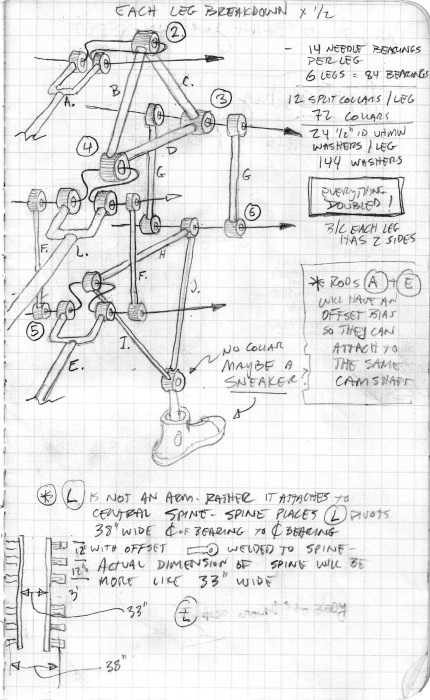 EACH LEG BREAKDOWN x 1/2
- 14 NEEDLE BEARINGS
PER LEG
6 LEGS = 84 BEARINGS
12 SPLIT COLLARS / LEG
72 COLLARS
24 1/2" ID
WASHERS / LEG
144 WASHERS
EVERYTHING
DOUBLED!
B/C EACH LEG
HAS 2 SIDES
* RODS A + E
WILL HAVE AN
OFFSET
SO THEY CAN
ATTACH TO
THE SAME
CAMSHAFT
2
B.
C.
A.
3
D
4
G
G
6
F.
L.
F.
H
J.
5
I.
E.
NO COLLAR
MAYBE A
SNEAKER.
* L IS NOT AN ARM - RATHER IT ATTACHES TO
CENTRAL SPINE - SPINE PLACES L PIVOTS
38" WIDE ℄ OF BEARING TO ℄ BEARING
WITH OFFSET WELDED TO SPINE -
ACTUAL DIMENSION OF SPINE WILL BE
MORE LIKE 33" WIDE
12
12"
3'
33"
38"